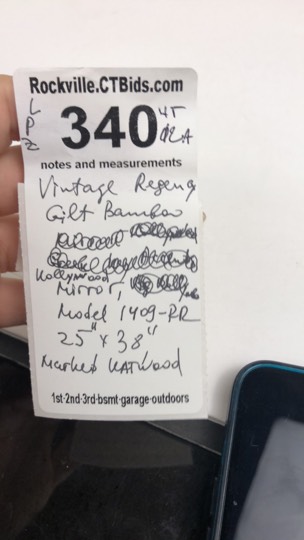 Rockville.CTBids.com
LP2
340
notes and measurements
Vintage Regency
Gilt Bamboo
Hollywood
Mirror,
Model 1409-RR
25" x 38"
Marked
1st-2nd-3rd-bsmt-garage-outdoors